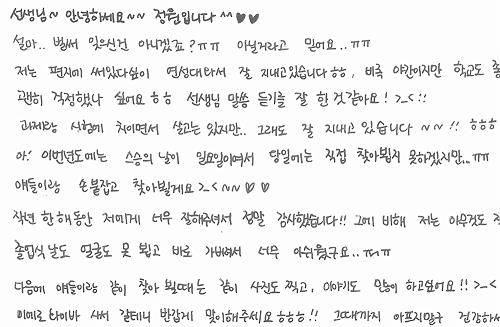 선생님~ 안녕하세요~~ 정원입니다 ^^♡♡
설마.. 벌써 잊으신건 아니겠죠? ㅠㅠ 아닐거라고 믿어요..ㅠㅠ
저는 편지에 써있다싶이 연성대와서 잘 지내고있습니다ㅎㅎ, 비록 야간이지만 학교도 좋
괜히 걱정했나 싶어요ㅎㅎ 선생님 말씀 듣기를 잘 한 것 같아요! >_<!!
과제랑 시험에 치이면서 살고는 있지만.. 그래도 잘 지내고 있습니다 ~~!! ㅎㅎㅎ
아! 이번년도에는 스승의 날이 일요일이여서 당일에는 직접 찾아뵙지 못하겠지만...ㅠㅠ
얘들이랑 손붙잡고 찾아뵐게요 >_<~~♡♡
작년 한해동안 저에게 너무 잘해주셔서 정말 감사했습니다!! 그에 비해 저는 아무것도
졸업식 날도 얼굴도 못 뵙고 바로 가버려서 너무 아쉬웠구요..ㅠㅠ
다음에 얘들이랑 같이 찾아 뵐때는 같이 사진도 찍고, 이야기도 많이 하고싶어요!! >_<
사서 갈테니 반갑게 맞이해주세요ㅎㅎㅎ!! 그때까지 아프지말구 건강하세